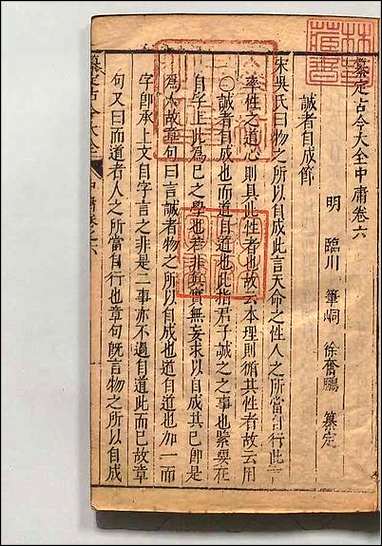 纂定古今大全中庸卷六
明 臨川 筆峒 徐奮鵬 纂定
誠者自成節
宋吳氏曰物之所以自成此言天命之性人之所當自行此言
率性之道心則具此性者也故云本理則循其性者故云用
○誠者自成也而道自道也此指君子誠之之事也緊要在
自字上此為己之學也若非真實無妄求以自成其己即是
為人故章句曰言誠者物之所以自成也道自道也加一而
字即承上文自字言之非是二事亦不過自道此而已故章
句又曰而道者人之所當自行也章句既言物之所以自成
纂定古今大全 中庸卷之六